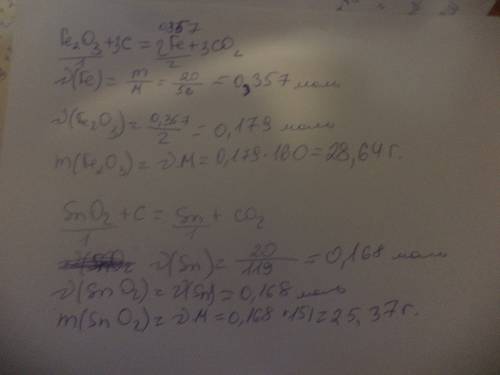 0,357
Fe₂O₃ + 3C = 2Fe + 3CO₂
1 2
ν(Fe) = m/M = 20/56 = 0,357 моль
ν(Fe₂O₃) = 0,357/2 = 0,179 моль
m(Fe₂O₃) = ν·M = 0,179·160 = 28,64 г.
SnO₂ + C = Sn + CO₂
1 1
ν(Sn) = 20/119 = 0,168 моль
ν(SnO₂) = ν(Sn) = 0,168 моль
m(SnO₂) = ν·M = 0,168·151 = 25,37 г.